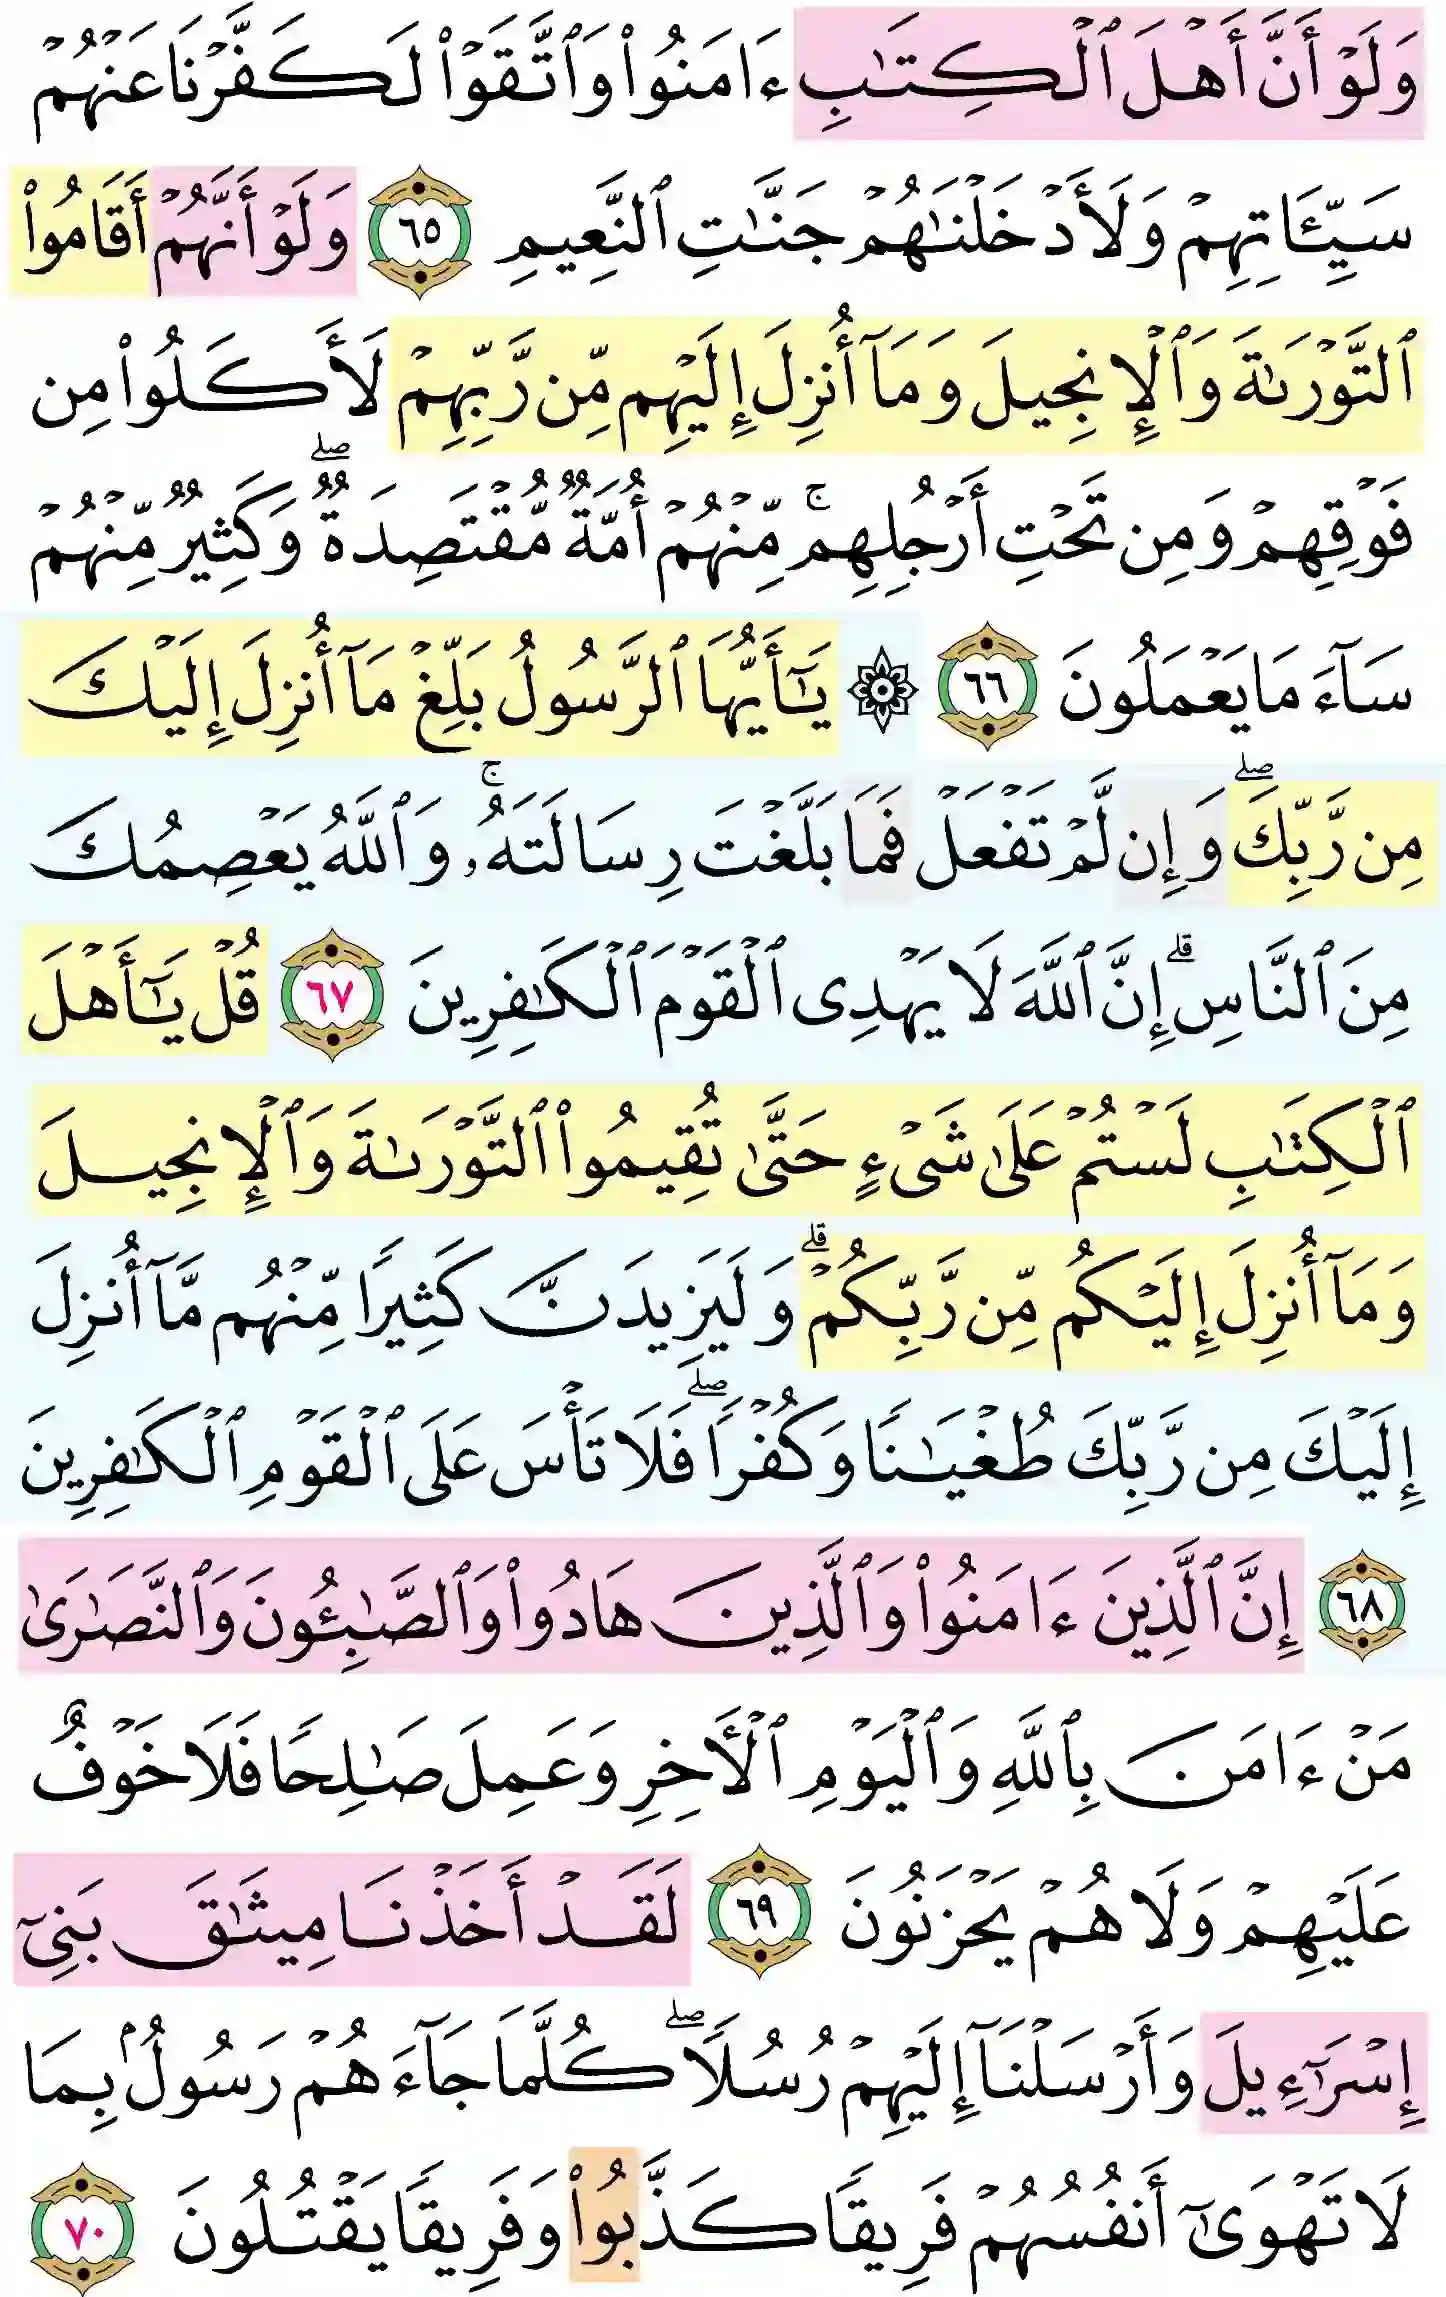 وَلَوۡ أَنَّ أَهۡلَ ٱلۡكِتَٰبِ ءَامَنُواْ وَٱتَّقَوۡاْ لَكَفَّرۡنَا عَنۡهُمۡ
سَيِّـَٔاتِهِمۡ وَلَأَدۡخَلۡنَٰهُمۡ جَنَّٰتِ ٱلنَّعِيمِ ٦٥ وَلَوۡ أَنَّهُمۡ أَقَامُواْ
ٱلتَّوۡرَىٰةَ وَٱلۡإِنجِيلَ وَمَآ أُنزِلَ إِلَيۡهِم مِّن رَّبِّهِمۡ لَأَكَلُواْ مِن
فَوۡقِهِمۡ وَمِن تَحۡتِ أَرۡجُلِهِمۚ مِّنۡهُمۡ أُمَّةٞ مُّقۡتَصِدَةٞۖ وَكَثِيرٞ مِّنۡهُمۡ
سَآءَ مَا يَعۡمَلُونَ ٦٦ ۞ يَٰٓأَيُّهَا ٱلرَّسُولُ بَلِّغۡ مَآ أُنزِلَ إِلَيۡكَ
مِن رَّبِّكَۖ وَإِن لَّمۡ تَفۡعَلۡ فَمَا بَلَّغۡتَ رِسَالَتَهُۥۚ وَٱللَّهُ يَعۡصِمُكَ
مِنَ ٱلنَّاسِۗ إِنَّ ٱللَّهَ لَا يَهۡدِى ٱلۡقَوۡمَ ٱلۡكَٰفِرِينَ ٦٧ قُلۡ يَٰٓأَهۡلَ
ٱلۡكِتَٰبِ لَسۡتُمۡ عَلَىٰ شَىۡءٍ حَتَّىٰ تُقِيمُواْ ٱلتَّوۡرَىٰةَ وَٱلۡإِنجِيلَ
وَمَآ أُنزِلَ إِلَيۡكُم مِّن رَّبِّكُمۡۗ وَلَيَزِيدَنَّ كَثِيرٗا مِّنۡهُم مَّآ أُنزِلَ
إِلَيۡكَ مِن رَّبِّكَ طُغۡيَٰنٗا وَكُفۡرٗاۖ فَلَا تَأۡسَ عَلَى ٱلۡقَوۡمِ ٱلۡكَٰفِرِينَ
٦٨ إِنَّ ٱلَّذِينَ ءَامَنُواْ وَٱلَّذِينَ هَادُواْ وَٱلصَّٰبِـُٔونَ وَٱلنَّصَٰرَىٰ
مَنۡ ءَامَنَ بِٱللَّهِ وَٱلۡيَوۡمِ ٱلۡأٓخِرِ وَعَمِلَ صَٰلِحٗا فَلَا خَوۡفٌ
عَلَيۡهِمۡ وَلَا هُمۡ يَحۡزَنُونَ ٦٩ لَقَدۡ أَخَذۡنَا مِيثَٰقَ بَنِىٓ
إِسۡرَٰٓءِيلَ وَأَرۡسَلۡنَآ إِلَيۡهِمۡ رُسُلٗاۖ كُلَّمَا جَآءَهُمۡ رَسُولُۢ بِمَا
لَا تَهۡوَىٰٓ أَنفُسُهُمۡ فَرِيقٗا كَذَّبُواْ وَفَرِيقٗا يَقۡتُلُونَ ٧٠